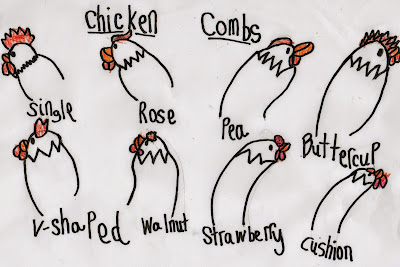 Chicken Combs
single
Rose
Pea
Buttercup
V-shaped
Walnut
Strawberry
cushion